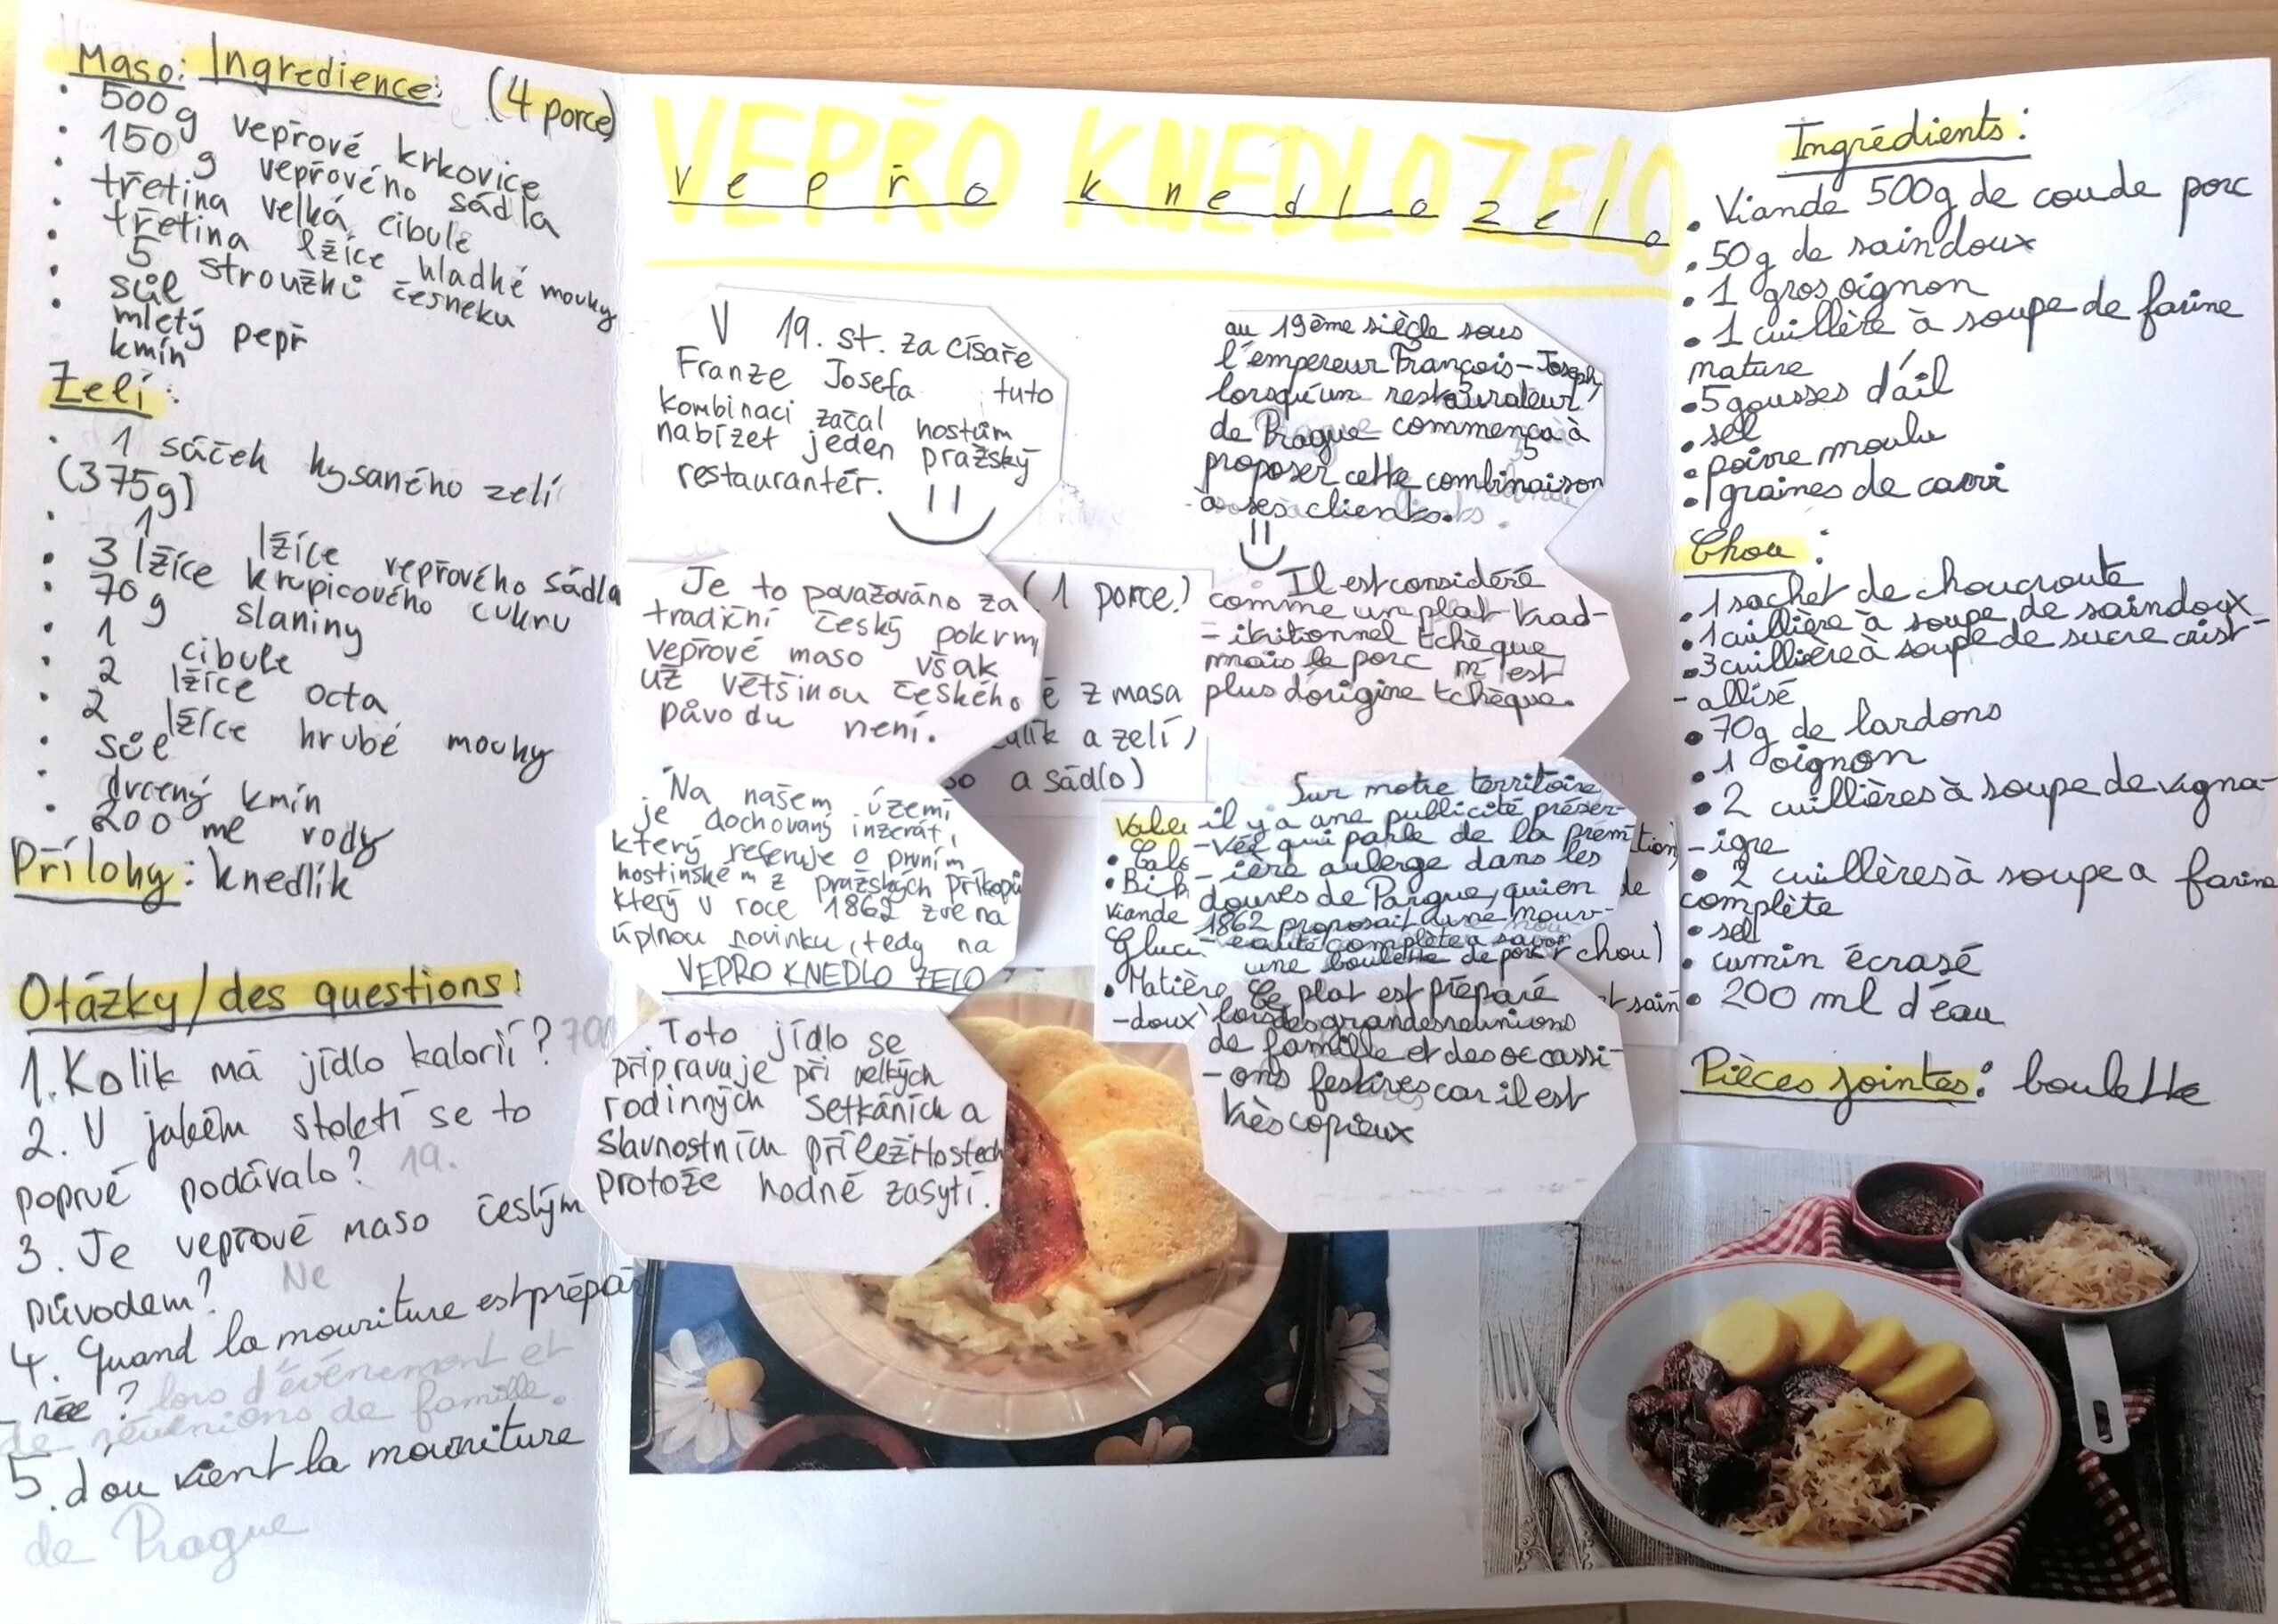 Maso: Ingredience: (4 porce)
• 500g vepřové krkovice
• 150 g vepřového sádla
• třetina velká cibule
• třetina lžíce hladké mouky
• 5 stroužků česneku
• sůl
• mletý pepř
kmín
Zelí:
• 1 sáček kysaného zelí
(375g)
• 1 lžíce vepřového sádla
• 3 lžíce krupicového cukru
• 70 g slaniny
• 1 cibule
• 2 lžíce octa
• 2 lžíce hrubé mouky
• sůl
• drcený kmín
• 200 ml vody
Přílohy: knedlík
Otázky/des questions:
1. Kolik má jídlo kalorií? 70
2. V jakém století se to
poprvé podávalo? 19.
3. Je vepřové maso českým
původem? Ne
4. Quand la mouriture est prépa
- rée? lors d'événement et
de réunions de famille.
5. d'ou vient la mourriture
de Prague
VEPŘO KNEDLO ZELO
vepřo knedlo zelo
V 19. st. za císaře
Franze Josefa tuto
kombinaci začal hostům
nabízet jeden pražský
restaurantér.
Je to považováno za
tradiční český pokrm,
vepřové maso však
už většinou českého
původu není.
Na našem území
je dochovaný inzerát,
který referuje o prvním
hostinském z pražských příkopů
který v roce 1862 zve na
úplnou novinku, tedy na
VEPŘO KNEDLO ZELO
Toto jídlo se
připravuje při velkých
rodinných setkáních a
slavnostních příležitostech
protože hodně zasytí.
(1 porce)
z masa
a zelí,
a sádlo)
au 19ème siècle sous
l'empereur François-Joseph,
lorsqu'un restaurateur
de Prague commença à
proposer cette combinaison
à ses clients.
Il est considéré
comme un plat trad-
- itritionnel tchèque
mais le porc m'est
plus d'origine tchèque.
Sur motre territoire
il y a une publicité préser-
-vée qui parle de la prem-
-ière auberge dans les
douves de Pargue, qui en
1862 proposait une mouv-
-eauté complète a savoir
une boulette de porc
Le plat est préparé
lors des grandes reunions
de famille et des occassi-
- ons festives car il est
très copieux
Vale
• Calo
• Bil
viande
Gluci
• Matière
-doux
tion)
de
chou)
et sain
Ingrédients:
• Viande 500g de cou de porc
• 50g de saindoux
• 1 gros oignon
• 1 cuillère à soupe de farine
mature
• 5 gousses d'ail
• sel
• poivre moulu
• graines de carvi
Chou:
• 1 sachet de choucroute
• 1 cuillière à soupe de saindoux
• 3 cuillière à soupe de sucre crist-
- allisé
• 70g de lardons
• 1 oignon
• 2 cuillières à soupe de vigna-
- igre
• 2 cuillères à soupe a farine
complète
• sel
• cumin écrasé
• 200 ml d'éau
Pièces jointes: boulette